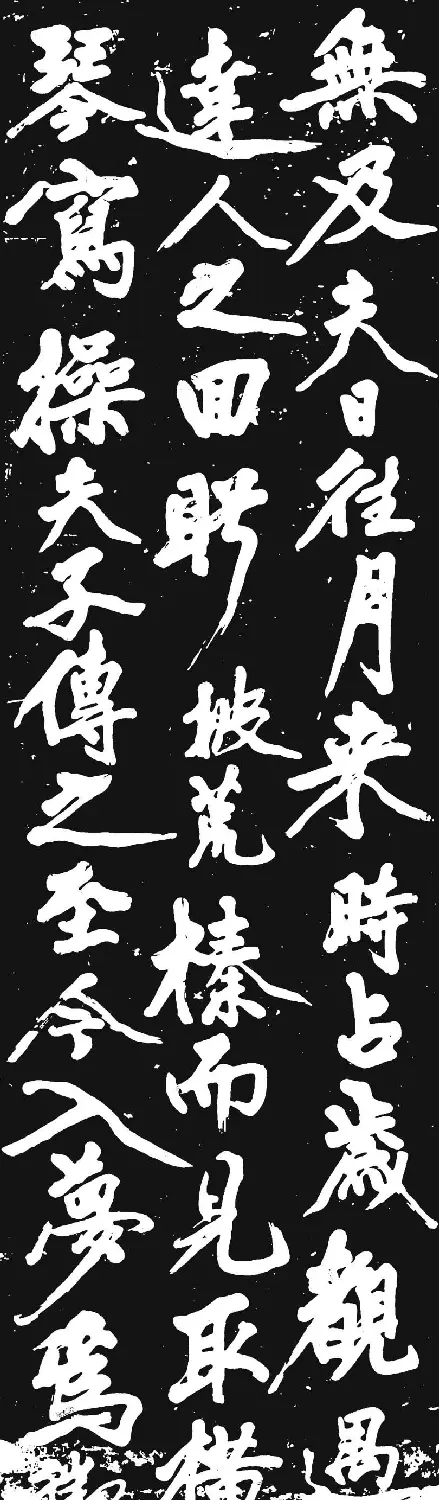 無及夫日往月来時占歲觀遇
達人之囬眄披荒榛而見取横
琴寫操夫子傳之至今入夢爲